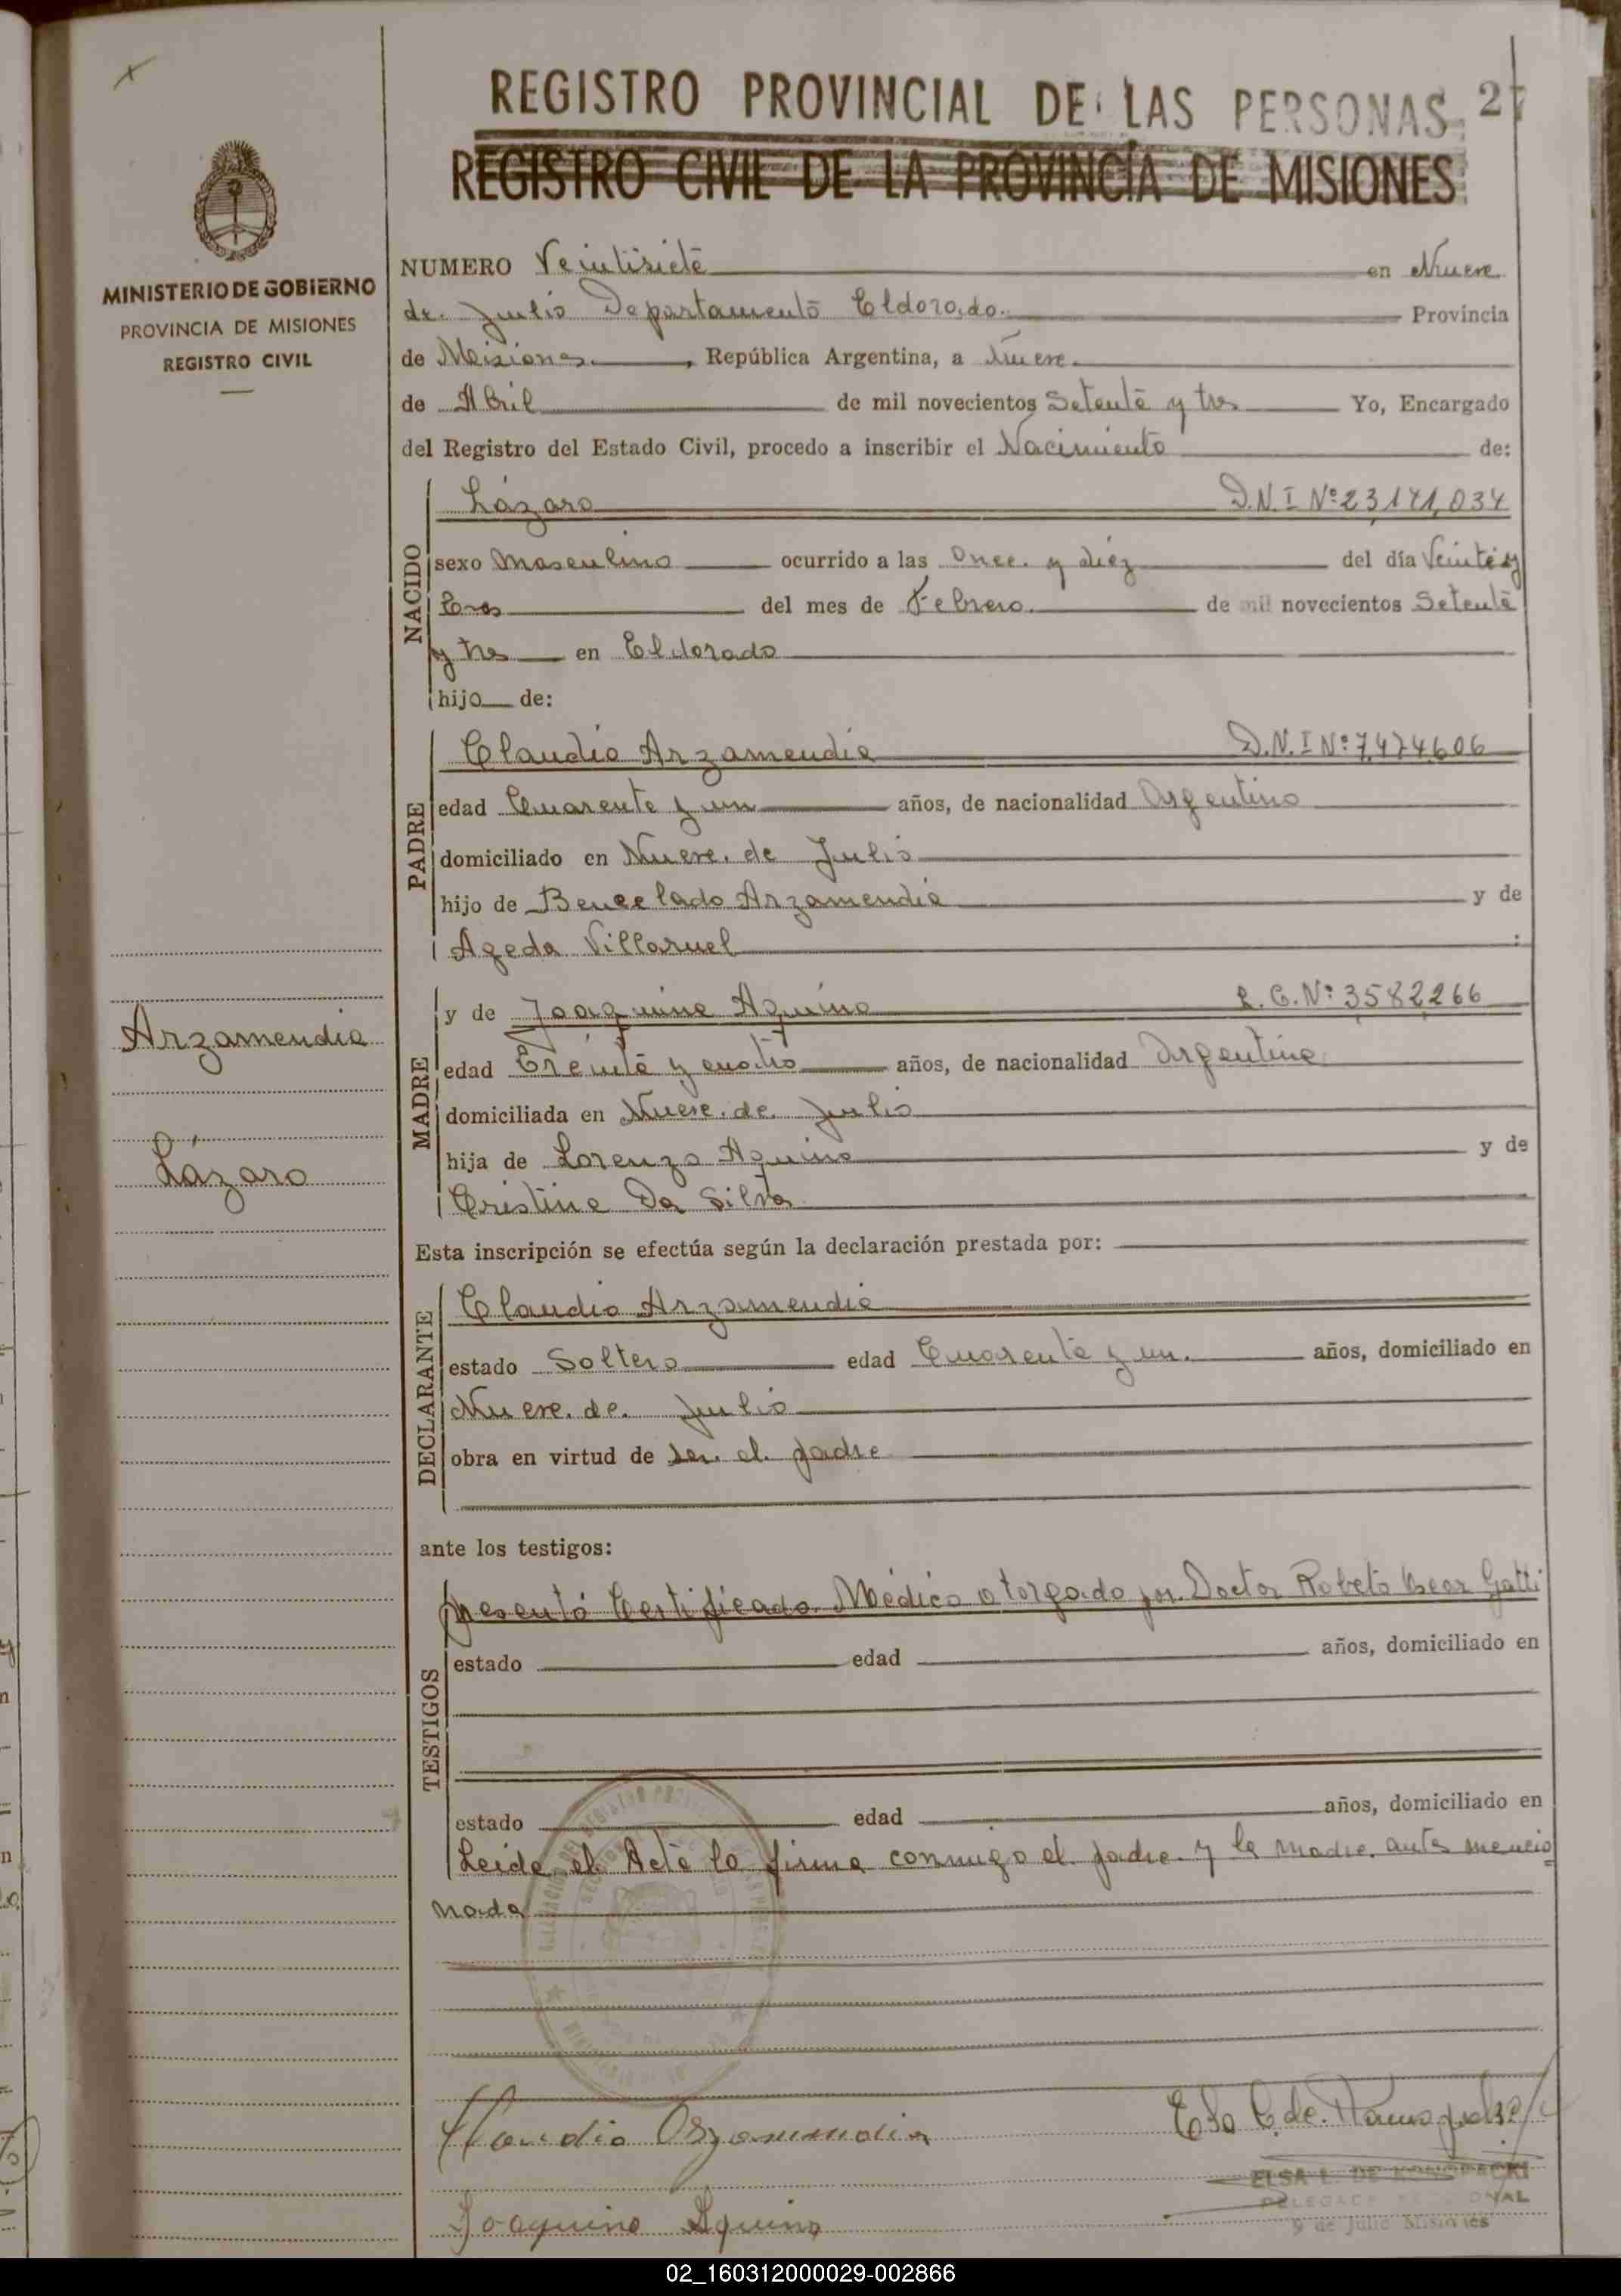 REGISTRO PROVINCIAL DE LAS PERSONAS 27
REGISTRO CIVIL DE LA PROVINCIA DE MISIONES
MINISTERIO DE GOBIERNO
PROVINCIA DE MISIONES
REGISTRO CIVIL
NUMERO Veintisiete en Nueve
de Julio Departamento Eldorado. Provincia
de Misiones, República Argentina, a Nueve
de Abril de mil novecientos Setenta y tres Yo, Encargado
del Registro del Estado Civil, procedo a inscribir el Nacimiento de:
NACIDO
Lázaro D.N.I Nº 23,141,034
sexo Masculino ocurrido a las Once y diez del día Veinte y
tres del mes de Febrero de mil novecientos Setenta
y tres en Eldorado
hijo de:
PADRE
Claudio Arzamendia D.N.I Nº 7,474,606
edad Cuarenta y un años, de nacionalidad Argentino
domiciliado en Nueve de Julio
hijo de Bencelado Arzamendia y de
Ageda Villaruel :
MADRE
y de Joaquina Aquino L.C. Nº 3,582,266
edad Treinta y cuatro años, de nacionalidad Argentina
domiciliada en Nueve de Julio
hija de Lorenzo Aquino y de
Cristina Da Silva
Arzamendia
Lázaro
Esta inscripción se efectúa según la declaración prestada por:
DECLARANTE
Claudio Arzamendia
estado Soltero edad Cuarenta y un. años, domiciliado en
Nueve de Julio
obra en virtud de ser el padre
ante los testigos:
TESTIGOS
presentó Certificado Médico otorgado por Doctor Roberto Gatti
estado edad años, domiciliado en
estado edad años, domiciliado en
Leida el Acta la firma conmigo el padre y la madre antes mencio
nada
Claudio Arzamendia
Joaquina Aquino
ELSA L. DE KONOPACKI
9 de Julio Misiones
02_160312000029-002866